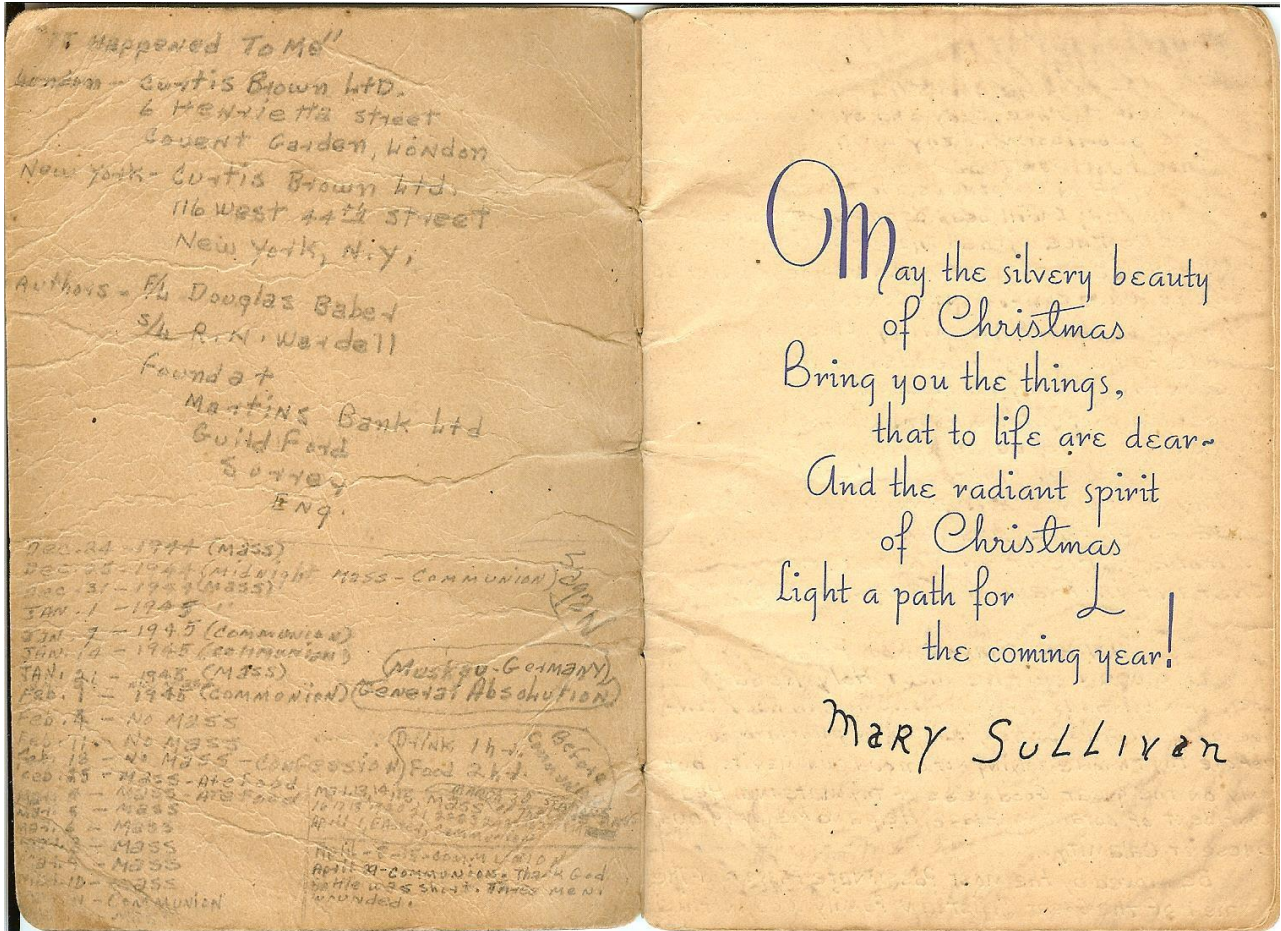 "IT Happened To Me"
London - Curtis Brown LtD.
6 Henrietta Street
Covent Garden, London
New York - Curtis Brown Ltd.
116 West 44th Street
New York, N.Y.
Authors - F/L Douglas Baber
S/L R.N. Wardell
Found at
Martins Bank Ltd
Guild Ford
Surrey
Eng.
Dec. 24 - 1944 (Mass)
Dec. 25 - 1944 (Midnight Mass - Communion)
Dec. 31 - 1944 (Mass)
JAN. 1 - 1945 "
JAN. 7 - 1945 (Communion)
JAN. 14 - 1945 (Communion)
JAN. 21 - 1945 (Mass)
Feb. 1945 (Communion)
(Muskau - Germany)
(General Absolution)
Feb. 4 - No Mass
Feb. 11 - No Mass
Feb. 18 - No Mass - Confession)
Drink 1 hr.
Food 2 hr.
Before
Feb. 25 - Mass - Ate Food
Mar. 4 - Mass - Ate Food
Mar. 5 - Mass
Mar. - Mass
Mar. - Mass
Mar. 9 - Mass
Mar. 10 - Mass
- Communion
April 1, Easter, Communion
April - 8 - 15 - Communion
April 29 - Communion. Thank God
battle was short. Three men.
wounded.
May the silvery beauty
of Christmas
Bring you the things,
that to life are dear~
And the radiant spirit
of Christmas
Light a path for
the coming year!
Mary Sullivan